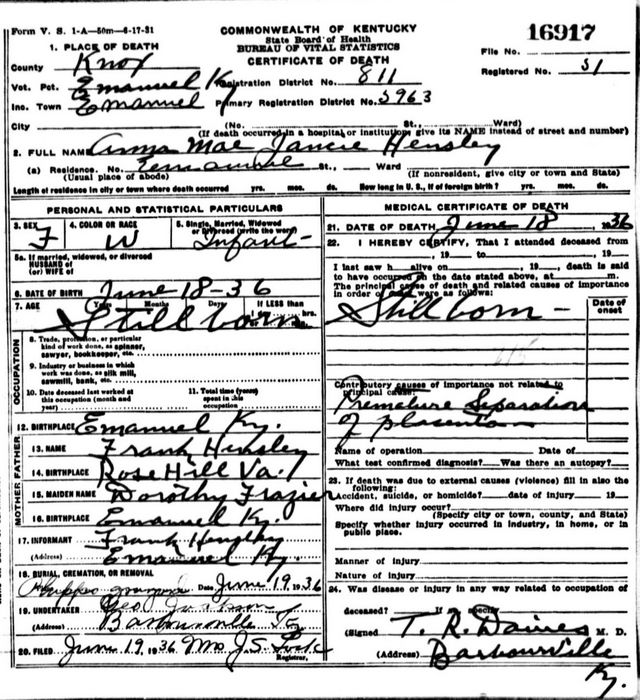 Form V. S. 1-A—50m—6-17-31
COMMONWEALTH OF KENTUCKY
State Board of Health
BUREAU OF VITAL STATISTICS
CERTIFICATE OF DEATH
16917
File No.
Registered No. 51
1. PLACE OF DEATH
County Knox
Vot. Pct. Emanuel Ky Registration District No. 811
Inc. Town Emanuel Primary Registration District No. 5963
City (No. St., Ward)
(If death occurred in a hospital or institution, give its NAME instead of street and number)
2. FULL NAME Anna Mae Hensley
(a) Residence. No. Emanuel St., Ward
(Usual place of abode) (If nonresident, give city or town and State)
Length of residence in city or town where death occurred yrs. mos. ds. How long in U. S., if of foreign birth? yrs. mos. ds.
PERSONAL AND STATISTICAL PARTICULARS
3. SEX F 4. COLOR OR RACE W 5. Single, Married, Widowed or Divorced (write the word) Infant
5a. If married, widowed, or divorced
HUSBAND of
(or) WIFE of
6. DATE OF BIRTH June 18-36
7. AGE Years Months Days If LESS than hrs.
Stillborn
OCCUPATION
8. Trade, profession, or particular
kind of work done, as spinner,
sawyer, bookkeeper, etc.
9. Industry or business in which
work was done, as silk mill,
sawmill, bank, etc.
10. Date deceased last worked at
this occupation (month and
year)
11. Total time (years)
spent in this
occupation
12. BIRTHPLACE Emanuel Ky.
FATHER
13. NAME Frank Hensley
14. BIRTHPLACE Rose Hill Va.
MOTHER
15. MAIDEN NAME Dorothy Frazier
16. BIRTHPLACE Emanuel Ky.
17. INFORMANT Frank Hensley
(Address) Emanuel Ky.
18. BURIAL, CREMATION, OR REMOVAL
Date June 19, 1936
19. UNDERTAKER Geo
(Address) Barbourville
20. FILED June 19, 1936 Mrs J. S.
Registrar.
MEDICAL CERTIFICATE OF DEATH
21. DATE OF DEATH June 18, 1936
22. I HEREBY CERTIFY, That I attended deceased from
, 19 to , 19
I last saw h alive on , 19 , death is said
to have occurred on the date stated above, at m.
The principal cause of death and related causes of importance
in order of onset were as follows:
Date of onset
Stillborn
Contributory causes of importance not related to
principal cause:
Premature Separation
of placenta
Name of operation Date of
What test confirmed diagnosis? Was there an autopsy?
23. If death was due to external causes (violence) fill in also the
following:
Accident, suicide, or homicide? date of injury 19
Where did injury occur?
(Specify city or town, county, and State)
Specify whether injury occurred in industry, in home, or in
public place.
Manner of injury
Nature of injury
24. Was disease or injury in any way related to occupation of
deceased? If so, specify
(Signed T. R. Davies M. D.
(Address) Barbourville
Ky.